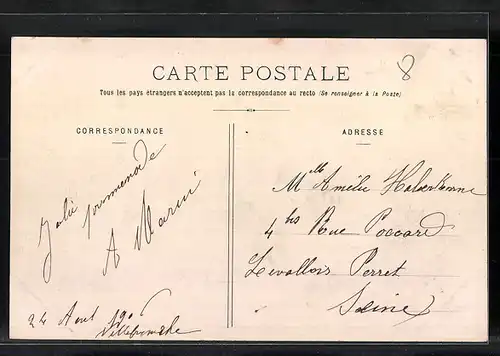 8
CARTE POSTALE
Tous les pays étrangers n'acceptent pas la correspondance au recto (Se renseigner à la Poste)
CORRESPONDANCE
ADRESSE
Jolie
promenade
A Marin
24 Avril 190
Mlle Amélie
4 bis Rue Poccard
Levallois Perret
Seine